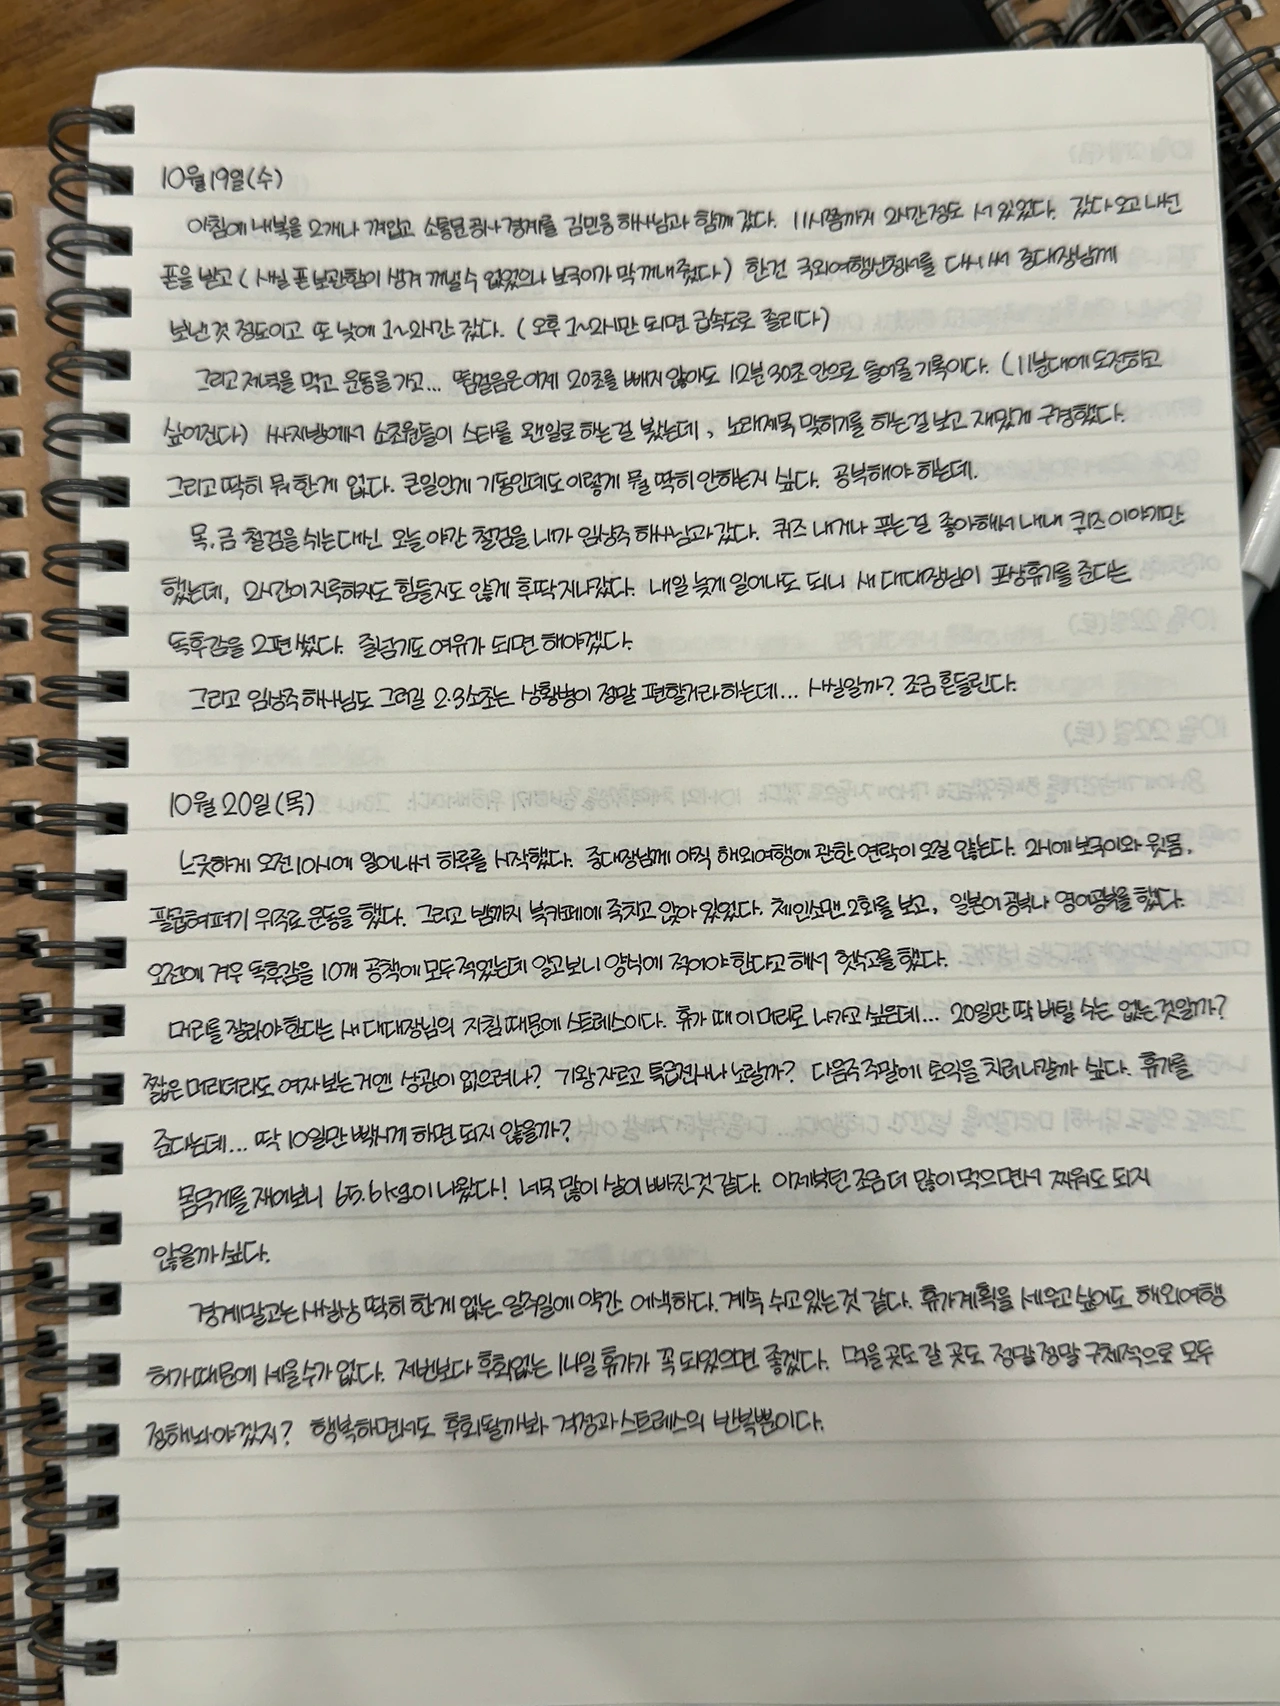 10월 19일(수)
아침에 내복을 2개나 껴입고 소통문 공사 경계를 김민웅 해사님과 함께 갔다. 11시쯤까지 2시간 정도 서 있었다. 갔다 오고 내선
폰을 받고 (사실 폰 보관함이 생겨 꺼낼 수 없었으나 보국이가 막 꺼내줬다) 한건 국외여행신청서를 다시 써 중대장님께
보낸 것 정도이고 또 낮에 1~2시간 잤다. (오후 1~2시만 되면 급속도로 졸리다)
그리고 저녁을 먹고 운동을 가고... 뜀걸음은 이제 20초를 빼지 않아도 12분 30초 안으로 들어올 기록이다. (11분대에 도전하고
싶어진다) 싸지방에서 소초원들이 스타를 왠일로 하는 걸 봤는데, 노래제목 맞히기를 하는 걸 보고 재밌게 구경했다.
그리고 딱히 뭐 한게 없다. 큰일안게 기동인데도 이렇게 뭘 딱히 안하는지 싶다. 공부해야 하는데.
목.금 철검을 쉬는 대신 오늘 야간 철검을 내가 임상주 해사님과 갔다. 퀴즈 내거나 푸는 걸 좋아해서 내내 퀴즈 이야기만
했는데, 2시간이 지루하지도 힘들지도 않게 후딱 지나갔다. 내일 늦게 일어나도 되니 새 대대장님이 포상휴가를 준다는
독후감을 2편 썼다. 줄넘기도 여유가 되면 해야겠다.
그리고 임상주 해사님도 그러길 2·3소초는 상황병이 정말 편할거라 하는데... 사실일까? 조금 흔들린다.
10월 20일(목)
느긋하게 오전 10시에 일어나서 하루를 시작했다. 중대장님께 아직 해외여행에 관한 연락이 오질 않는다. 2시에 보국이와 윗몸,
팔굽혀펴기 위주로 운동을 했다. 그리고 밤까지 북카페에 죽치고 앉아 있었다. 체인소맨 2화를 보고, 일본어 공부나 영어공부를 했다.
오전에 겨우 독후감을 10개 공책에 모두 적었는데 알고보니 양식에 적어야 한다고 해서 헛수고를 했다.
머리를 잘라야 한다는 새 대대장님의 지침 때문에 스트레스이다. 휴가 때 이 머리로 나가고 싶은데... 20일만 딱 버틸 수는 없는 것일까?
짧은 머리더라도 여자 보는 거엔 상관이 없으려나? 기왕 자르고 특급전사나 노랄까? 다음주 주말에 토익을 치러 나갈까 싶다. 휴가를
준다는데... 딱 10일만 빡시게 하면 되지 않을까?
몸무게를 재어보니 65.6kg이 나왔다! 너무 많이 살이 빠진 것 같다. 이제부턴 조금 더 많이 먹으면서 찌워도 되지
않을까 싶다.
경계말고는 사실상 딱히 한게 없는 일주일에 약간 어색하다. 계속 쉬고 있는 것 같다. 휴가계획을 세우고 싶어도 해외여행
허가 때문에 세울 수가 없다. 저번보다 후회없는 14일 휴가가 꼭 되었으면 좋겠다. 먹을 곳도 갈 곳도 정말 정말 구체적으로 모두
정해놔야겠지? 행복하면서도 후회될까봐 걱정과 스트레스의 반복뿐이다.